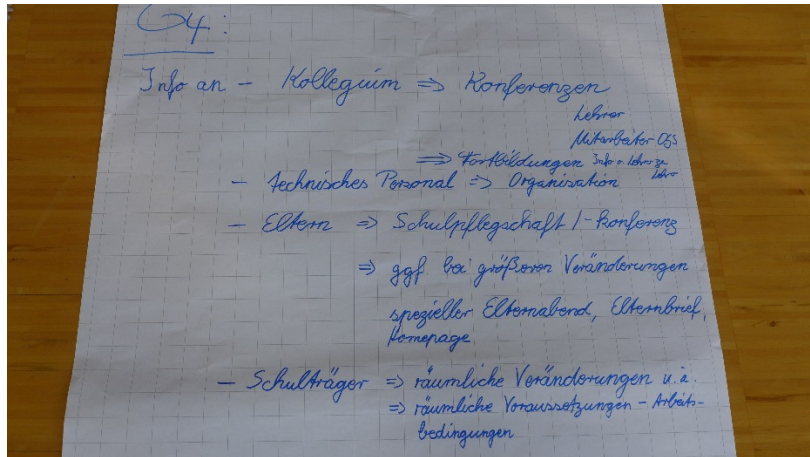 G4:
Info an - Kollegium => Konferenzen
Lehrer
Mitarbeiter OGS
=> Fortbildungen Info v. Lehrer zu Lehrer
- technisches Personal => Organisation
- Eltern => Schulpflegschaft / -konferenz
=> ggf bei größeren Veränderungen
spezieller Elternabend, Elternbrief,
Homepage.
- Schulträger => räumliche Veränderungen u.a.
=> räumliche Voraussetzungen - Arbeits-
bedingungen